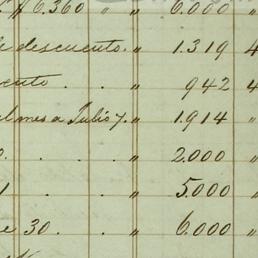 $ 6.360 " " 6.000 "
de descuento. " 1.319 4
cento . . " 942 4
al mes a Julio 7. " 1.914 "
o. . . . " 2.000 "
1 . . . " 5.000 "
e 30. . . " 6.000 "